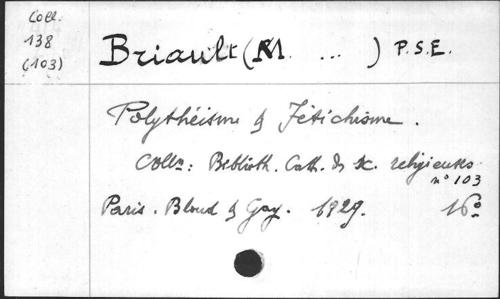 Coll.
138
(103)
Briault (M. ... ) P.S.E.
Polythéisme & Fétichisme.
Colln: Biblioth. Cath. des Sc. religieuses
n° 103
Paris. Bloud & Gay. 1929. 16°